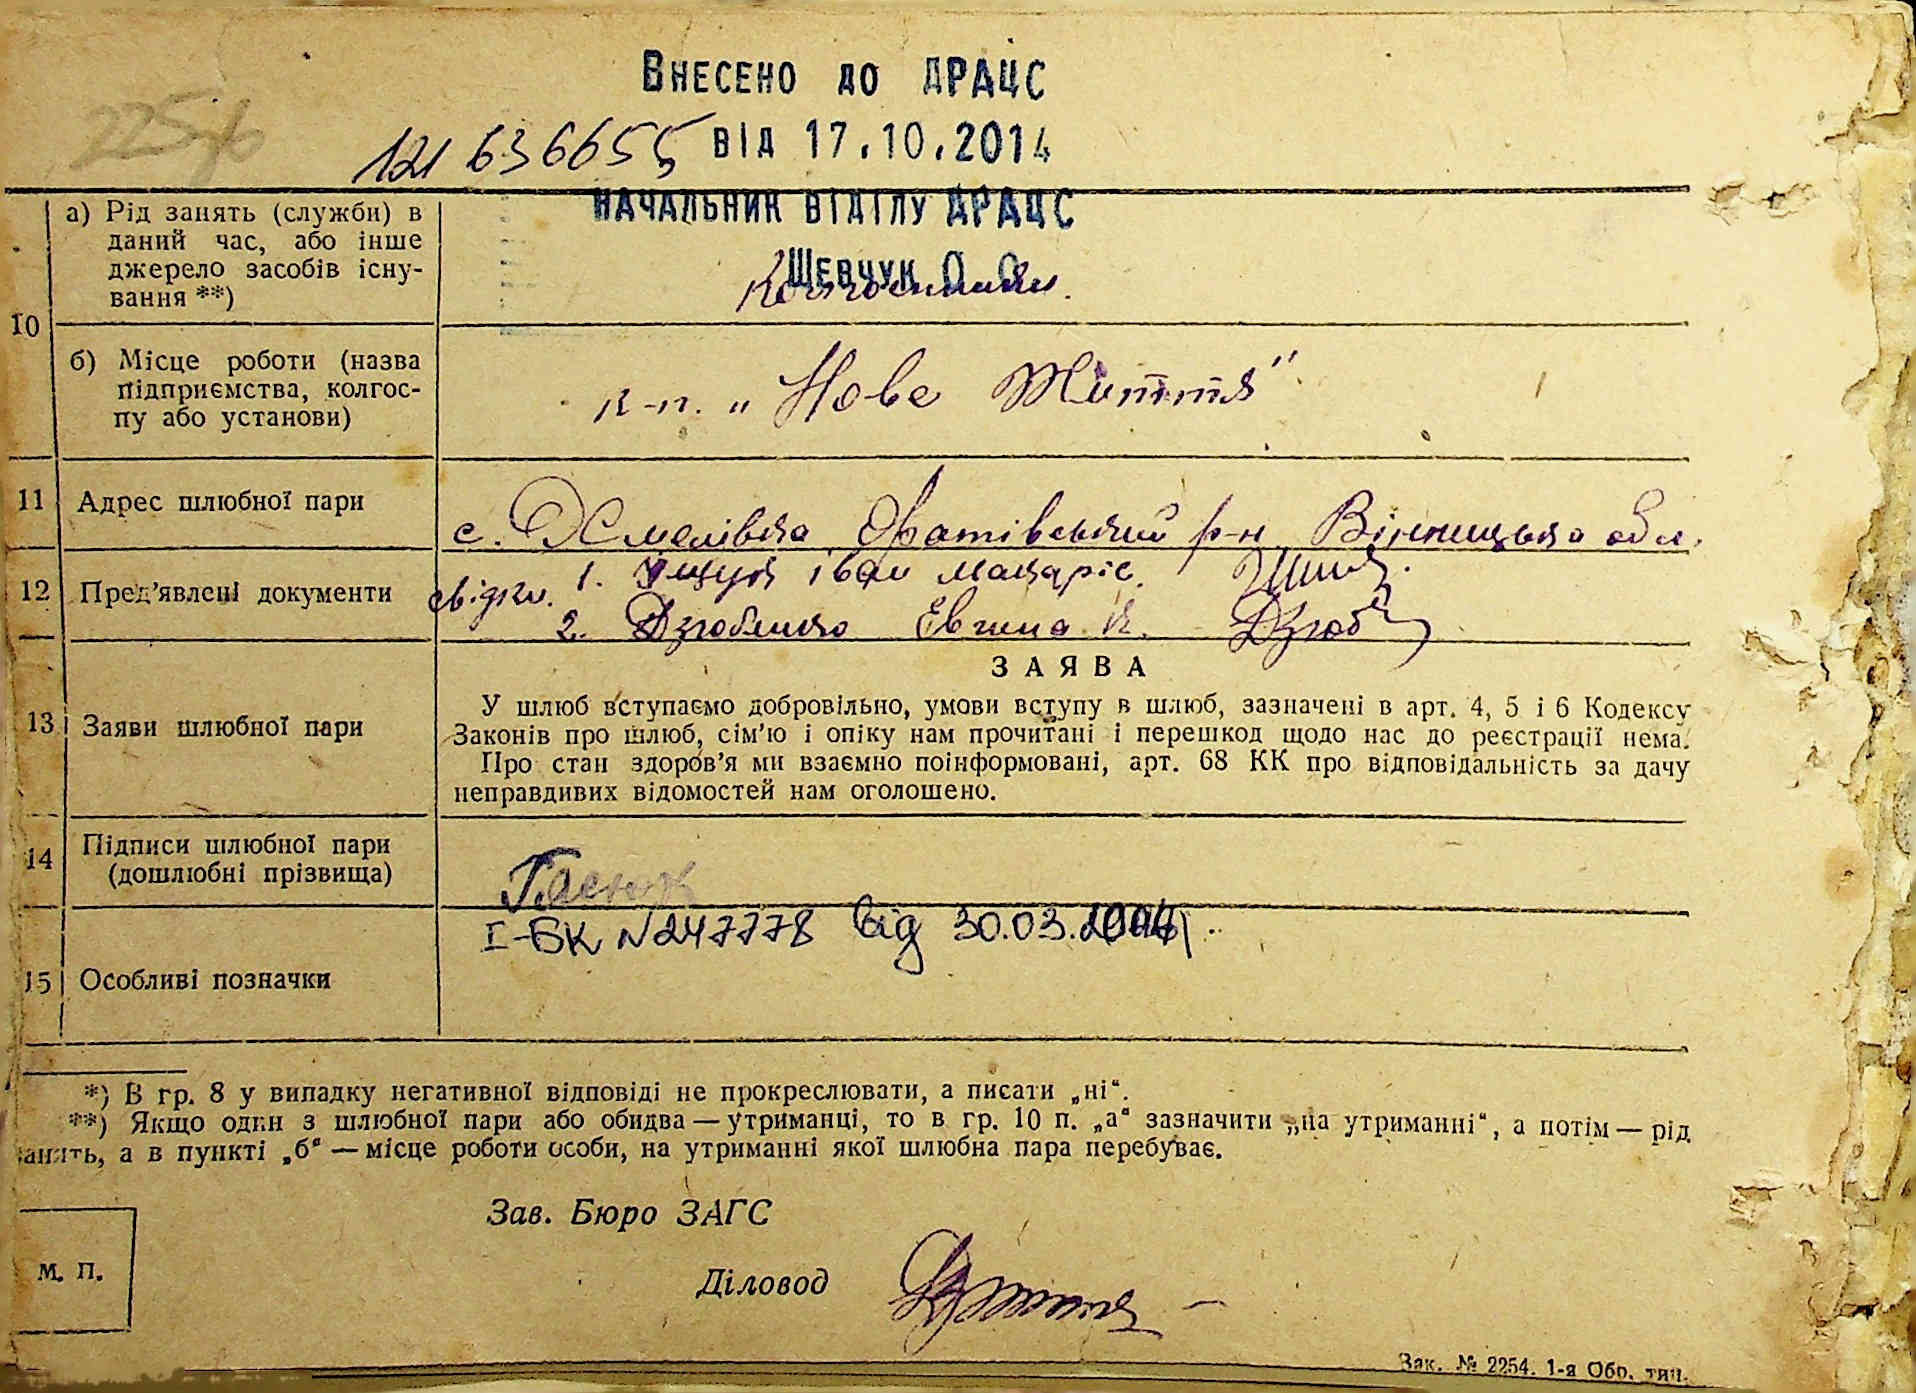 Внесено до ДРАЦС
225/б
121 636655 від 17.10.2014
НАЧАЛЬНИК ВІДІЛУ ДРАЦС
ШЕВЧУК О О
10
а) Рід занять (служби) в
даний час, або інше
джерело засобів існу-
вання **)
б) Місце роботи (назва
підприємства, колгос-
пу або установи)
к-п. „Нове Життя"
11 Адрес шлюбної пари
с. Оратівський р-н Вінницька обл.
12 Пред'явлені документи
свідки. 1. Іван Макаріє.
2. Дзюбенко Евгина К. Дзюб
13 Заяви шлюбної пари
ЗАЯВА
У шлюб вступаємо добровільно, умови вступу в шлюб, зазначені в арт. 4, 5 і 6 Кодексу
Законів про шлюб, сім'ю і опіку нам прочитані і перешкод щодо нас до реєстрації нема.
Про стан здоров'я ми взаємно поінформовані, арт. 68 КК про відповідальність за дачу
неправдивих відомостей нам оголошено.
14 Підписи шлюбної пари
(дошлюбні прізвища)
15 Особливі позначки
І-БК №247778 від 30.03.
*) В гр. 8 у випадку негативної відповіді не прокреслювати, а писати „ні“.
**) Якщо один з шлюбної пари або обидва — утриманці, то в гр. 10 п. „а“ зазначити „на утриманні“, а потім — рід
занять, а в пункті „б“ — місце роботи особи, на утриманні якої шлюбна пара перебуває.
Зав. Бюро ЗАГС
М. П.
Діловод
Зак. № 2254. 1-я Обр. тип.